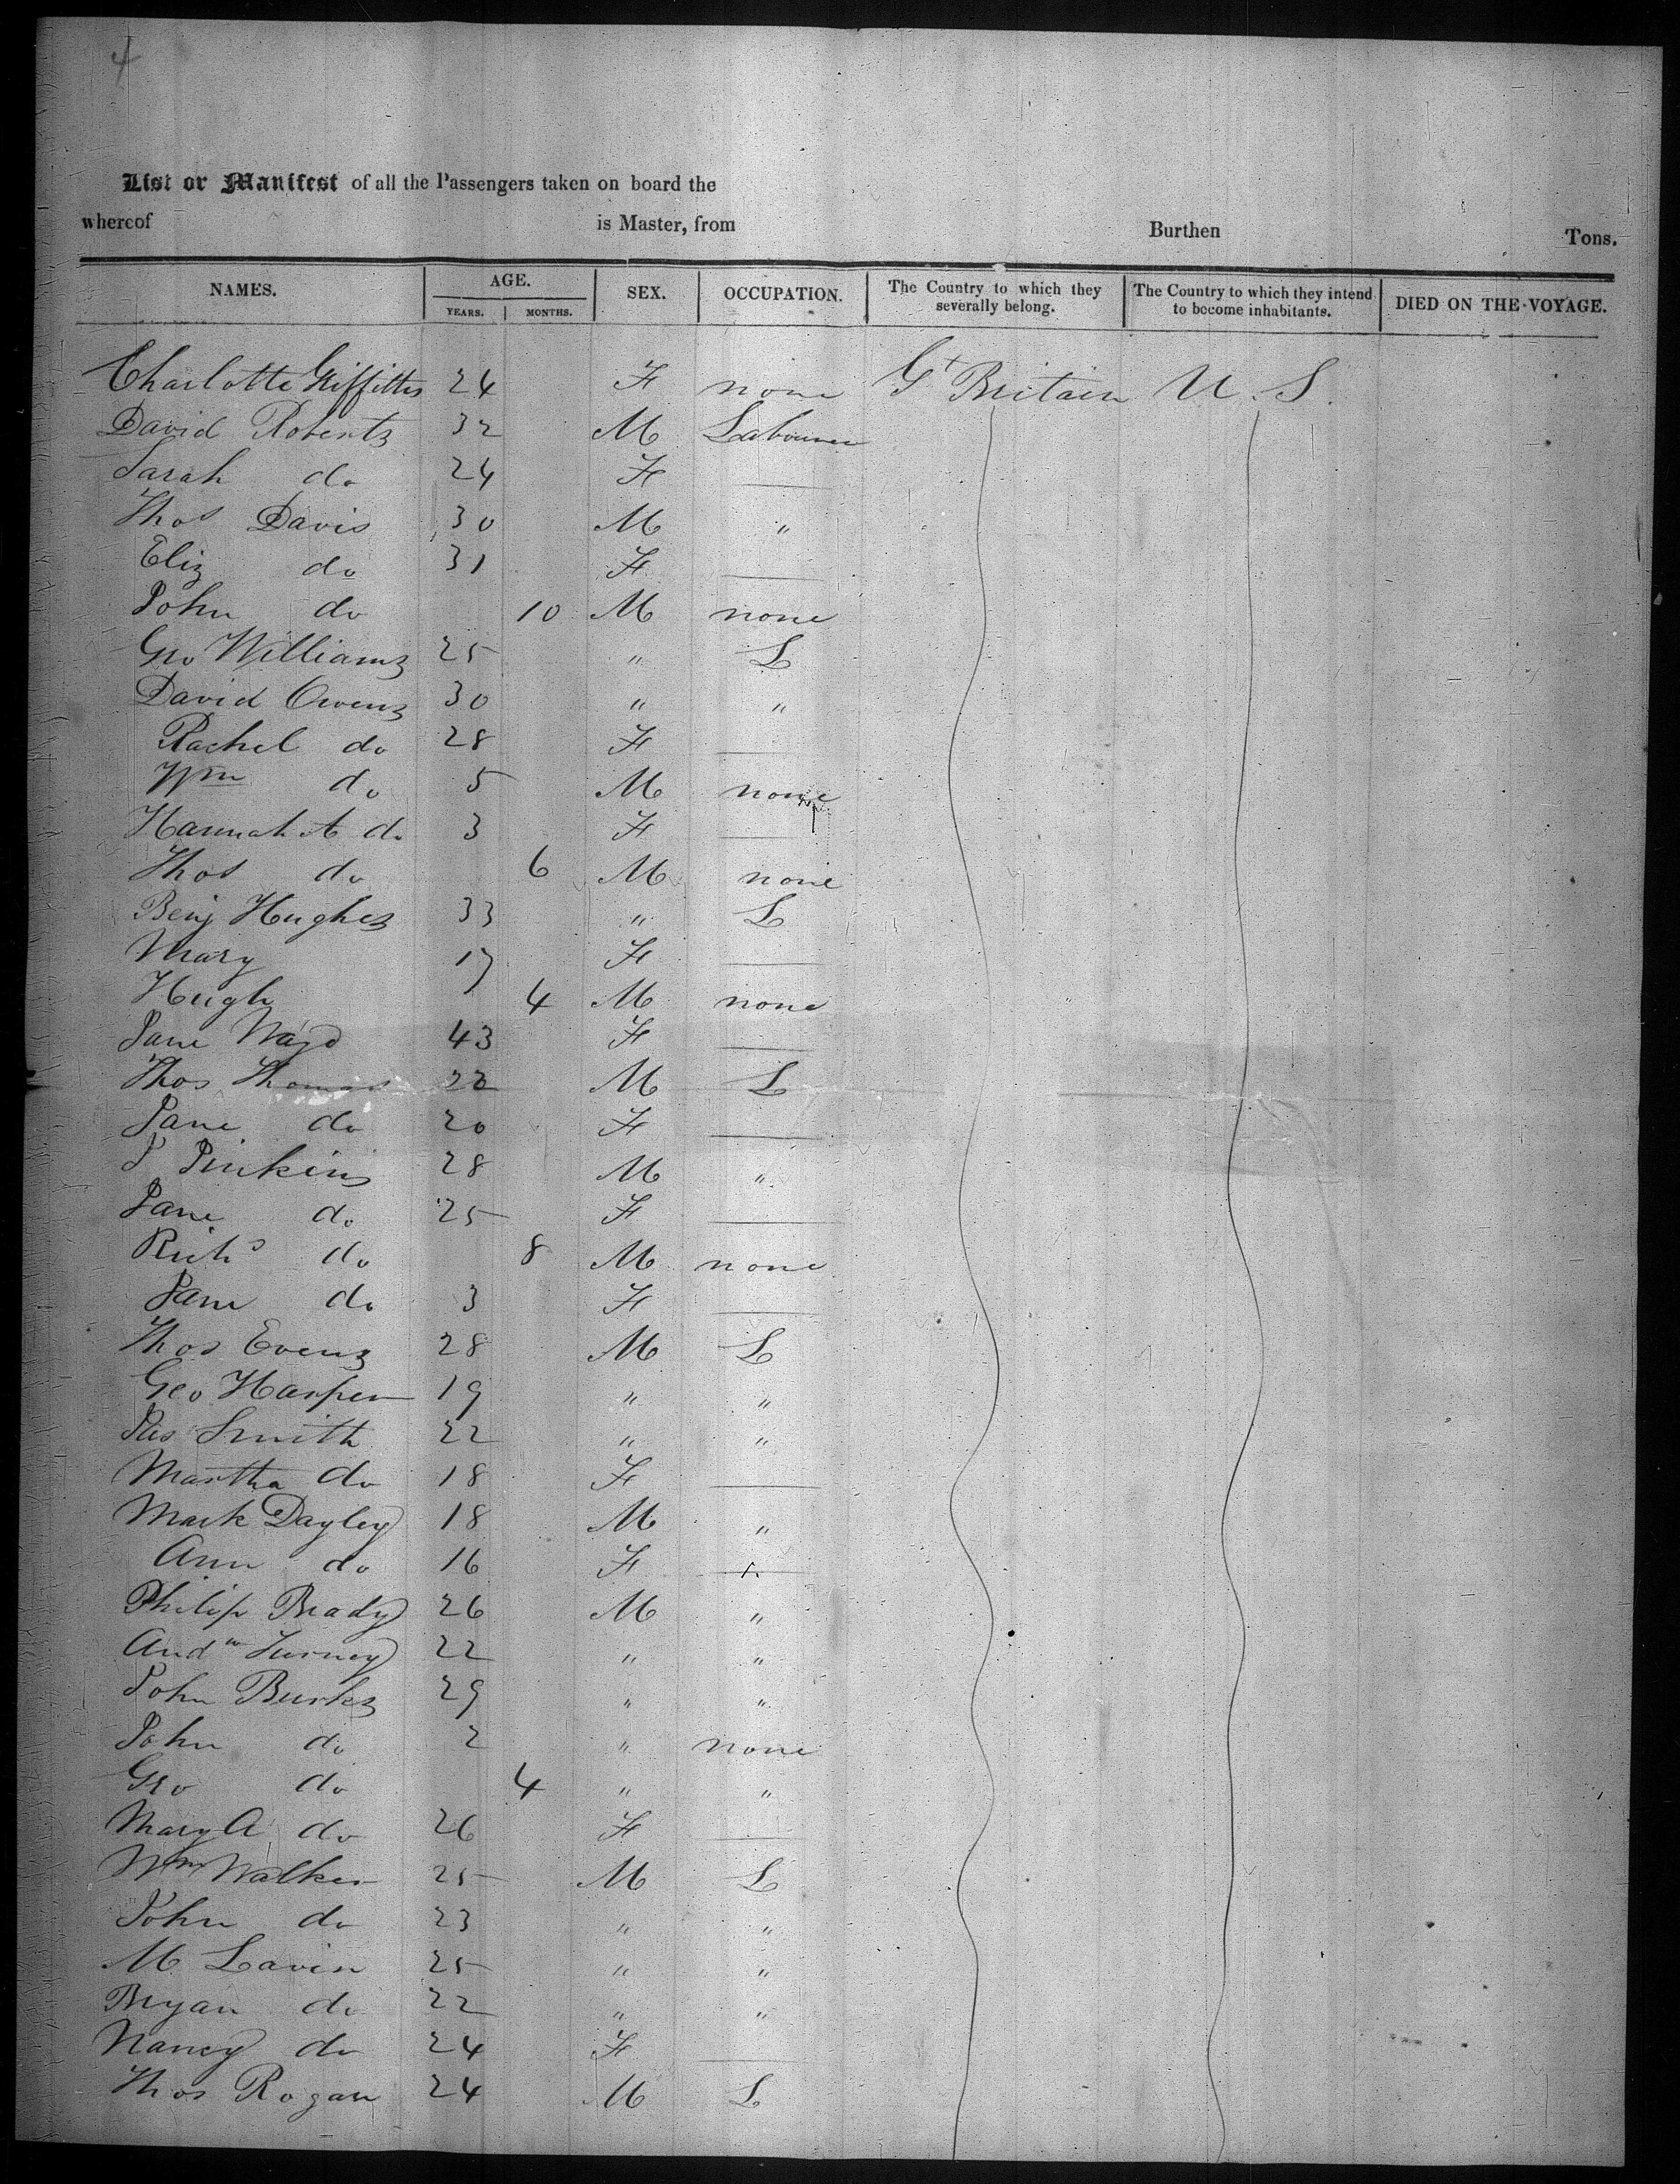 4
List or Manifest of all the Passengers taken on board the
whereof is Master, from Burthen Tons.
NAMES. AGE. SEX. OCCUPATION. The Country to which they severally belong. The Country to which they intend to become inhabitants. DIED ON THE VOYAGE.
YEARS. MONTHS.
Charlotte Griffiths 24 F none Gt Britain U. S.
David Roberts 32 M Labourer
Sarah do 24 F
Thos Davis 30 M "
Eliz do 31 F
John do 10 M none
Geo Williams 25 " L
David Owens 30 " "
Rachel do 28 F
Wm do 5 M none
Hannah A do 3 F
Thos do 6 M none
Benj Hughes 33 " L
Mary 17 F
Hugh 4 M none
Jane Ward 43 F
Thos Thomas 22 M L
Jane do 20 F
J Jenkins 28 M "
Jane do 25 F
Richd do 8 M none
Jane do 3 F
Thos Evens 28 M L
Geo Harper 19 " "
Jas Smith 22 " "
Martha do 18 F
Mark Dayley 18 M "
Ann do 16 F
Philip Brady 26 M "
Andw 22 " "
John Burks 29 " "
John do 2 " none
Geo do 4 " "
Mary A do 26 F
Wm Walker 25 M L
John do 23 " "
M Lavin 25 " "
Bryan do 22 " "
Nancy do 24 F
Thos Rogan 24 M L